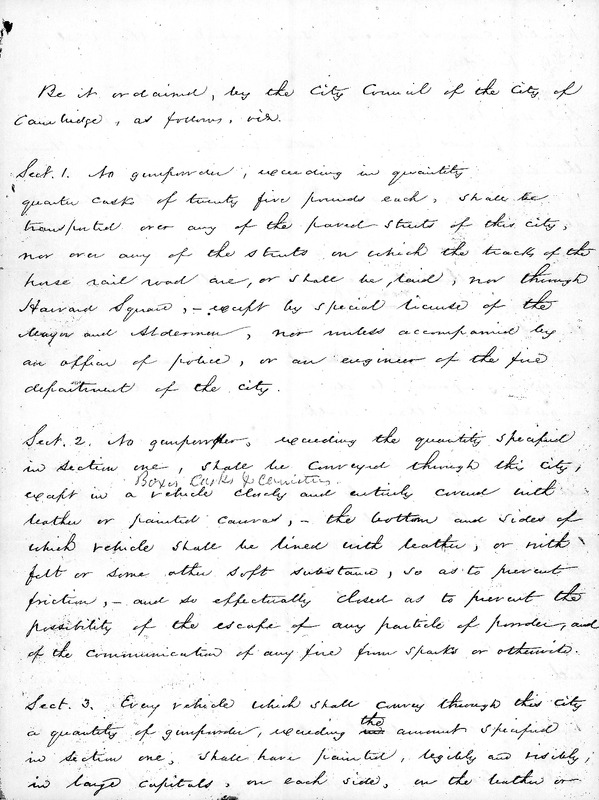 Be it ordained, by the City Council of the City of
Cambridge, as follows, viz.
Sect. 1. No gunpowder, exceeding in quantity
quarter casks of twenty five pounds each, shall be
transported over any of the paved streets of this city,
nor over any of the streets on which the tracks of the
horse rail road are, or shall be, laid; nor through
Harvard Square, – except by special license of the
Mayor and Aldermen, nor unless accompanied by
an officer of police, or an engineer of the fire
department of the city.
Sect. 2. No gunpowder, exceeding the quantity specified
in section one, shall be conveyed through this city,
Boxes, Casks & Cannisters.
except in a vehicle closely and entirely covered with
leather or painted canvas, – the bottom and sides of
which vehicle shall be lined with leather, or with
felt or some other soft substance, so as to prevent
friction, – and so effectually closed as to prevent the
possibility of the escape of any particle of powder, and
of the communication of any fire from sparks or otherwise.
Sect. 3. Every vehicle which shall convey through this city
a quantity of gunpowder, exceeding the amount specified
in section one, shall have painted, legibly and visibly,
in large capitals, on each side, on the leather or